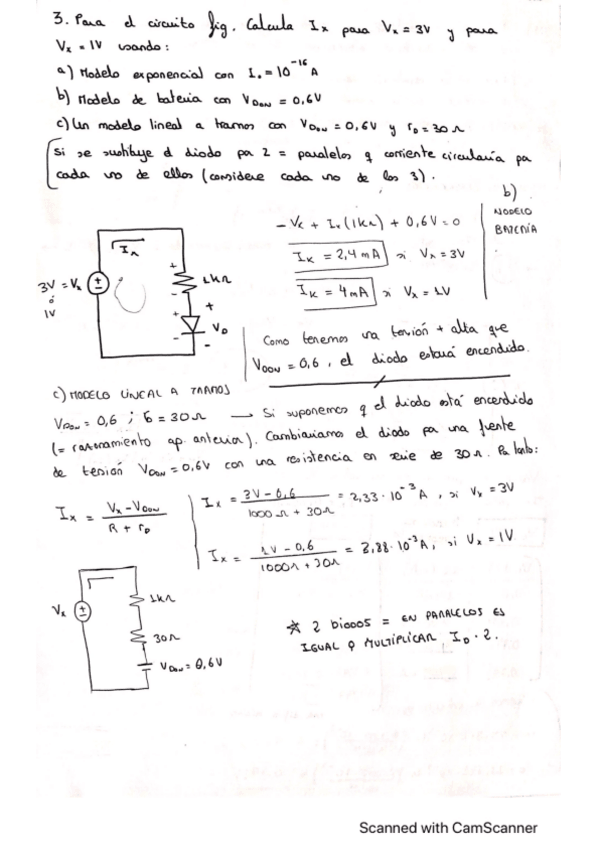 3. Para el circuito fig. Calcula Ix para Vx = 3V y para
Vx = 1V usando:
a) Modelo exponencial con I. = 10^-16 A
b) Modelo de bateria con VDON = 0,6V
c) Un modelo lineal a tramos con VDON = 0,6V y rD = 30 Ω
Si se sustituye el diodo por 2 = paralelos q corriente circularía por
cada uno de ellos (considere cada uno de los 3).
b)
MODELO
BATERÍA
- Vx + Ix (1kΩ) + 0,6V = 0
Ix = 2,4 mA si Vx = 3V
Ix = 4 mA si Vx = 1V
Ix
3V = Vx
ó
1V
1kΩ
VD
Como tenemos una tensión + alta que
VDON = 0,6, el diodo estará encendido.
c) MODELO LINEAL A TRAMOS
VDON = 0,6 ; rD = 30Ω → Si suponemos q el diodo está encendido
(= razonamiento ap. anterior). Cambiaríamos el diodo por una fuente
de tensión VDON = 0,6V con una resistencia en serie de 30Ω. Por tanto:
Ix = (Vx - VDON) / (R + rD)
Ix = (3V - 0,6) / (1000Ω + 30Ω) = 2,33 · 10^-3 A, si Vx = 3V
Ix = (1V - 0,6) / (1000Ω + 30Ω) = 3,88 · 10^-3 A, si Vx = 1V
Vx
1kΩ
30Ω
VDON = 0,6V
* 2 DIODOS = EN PARALELOS ES
IGUAL Q MULTIPLICAR ID · 2.
Scanned with CamScanner